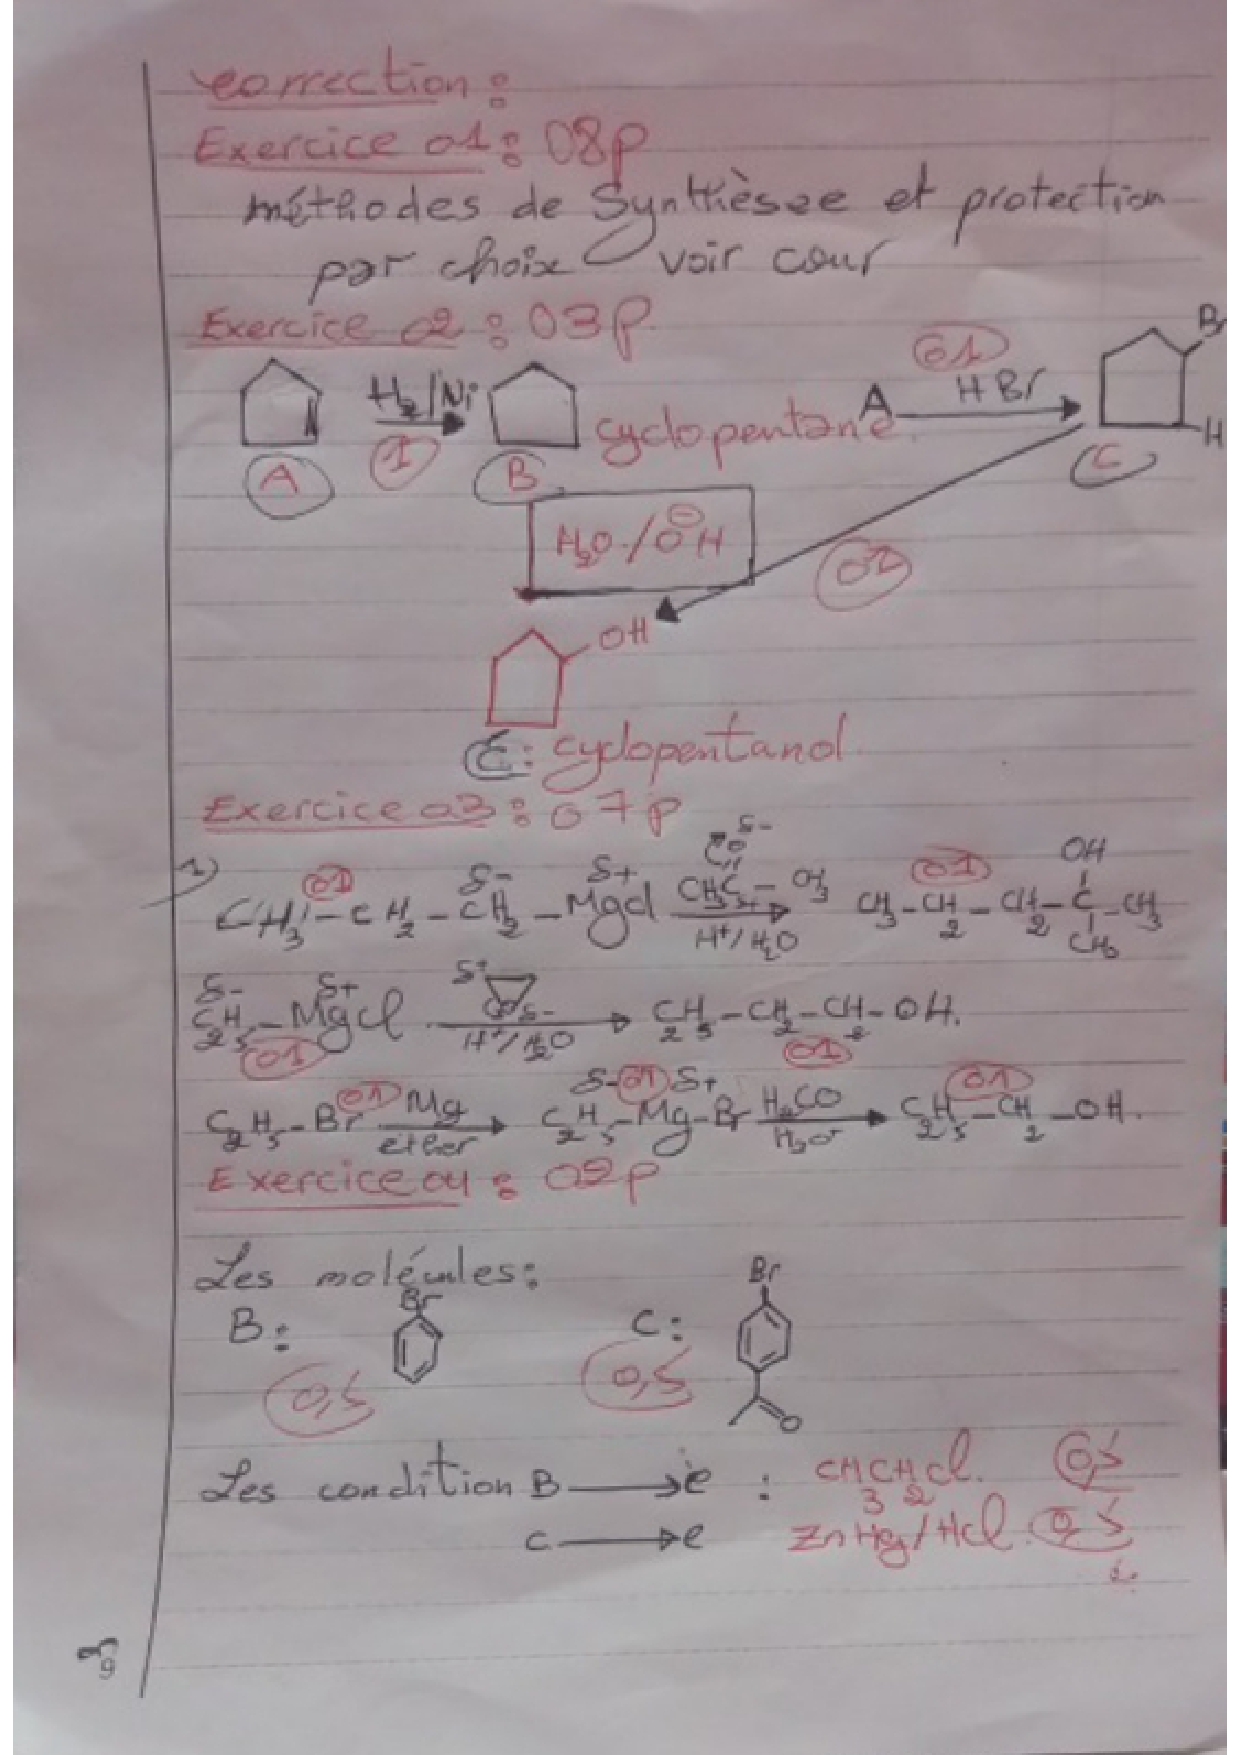 correction :
Exercice 01 : 08p
méthodes de Synthèsee et protection
par choix voir cour
Exercice 02 : 03p.
A H2/Ni 1 B cyclopentane A 01 HBr Br H C
H2O / OH⊖ 02
OH
E : cyclopentanol
Exercice 03 : 07p
1) CH3 - CH2 - CH2 δ- - MgCl δ+ 01 CH3C δ+ - CH3 O δ- H+/H2O CH3 - CH2 - CH2 - C - CH3 OH CH3 01
δ- C2H5 - MgCl δ+ 01 δ+ O δ- H+/H2O C2H5 - CH2 - CH2 - OH. 01
C2H5 - Br 01 Mg ether C2H5 δ- - Mg δ+ - Br 01 H2CO H3O+ C2H5 - CH2 - OH. 01
Exercice 04 : 02p
Les molécules :
B : Br 0,5 C : Br O 0,5
Les condition B → e : CH3CH2Cl. 0,5
C → e ZnHg/HCl. 0,5